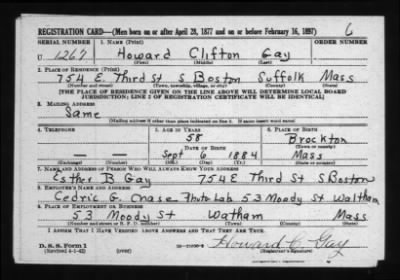 REGISTRATION CARD—(Men born on or after April 28, 1877 and on or before February 16, 1897) 6
SERIAL NUMBER 1. NAME (Print) ORDER NUMBER
U 1267 Howard Clifton Gay
(First) (Middle) (Last)
2. PLACE OF RESIDENCE (Print)
754 E. Third St S Boston Suffolk Mass
(Number and street) (Town, township, village, or city) (County) (State)
[THE PLACE OF RESIDENCE GIVEN ON THE LINE ABOVE WILL DETERMINE LOCAL BOARD
JURISDICTION; LINE 2 OF REGISTRATION CERTIFICATE WILL BE IDENTICAL]
3. MAILING ADDRESS
Same
[Mailing address if other than place indicated on line 2. If same insert word same]
4. TELEPHONE 5. AGE IN YEARS 6. PLACE OF BIRTH
58 Brockton
DATE OF BIRTH (Town or county)
Sept 6 1884 Mass
(Exchange) (Number) (Mo.) (Day) (Yr.) (State or country)
7. NAME AND ADDRESS OF PERSON WHO WILL ALWAYS KNOW YOUR ADDRESS
Esther B Gay 754 E Third St S Boston
8. EMPLOYER'S NAME AND ADDRESS
Cedric G. Chase Photo Lab 53 Moody St Waltham
9. PLACE OF EMPLOYMENT OR BUSINESS
53 Moody St Watham Mass
(Number and street or R. F. D. number) (Town) (County) (State)
I AFFIRM THAT I HAVE VERIFIED ABOVE ANSWERS AND THAT THEY ARE TRUE.
D. S. S. Form 1
(Revised 4-1-42) Howard C. Gay